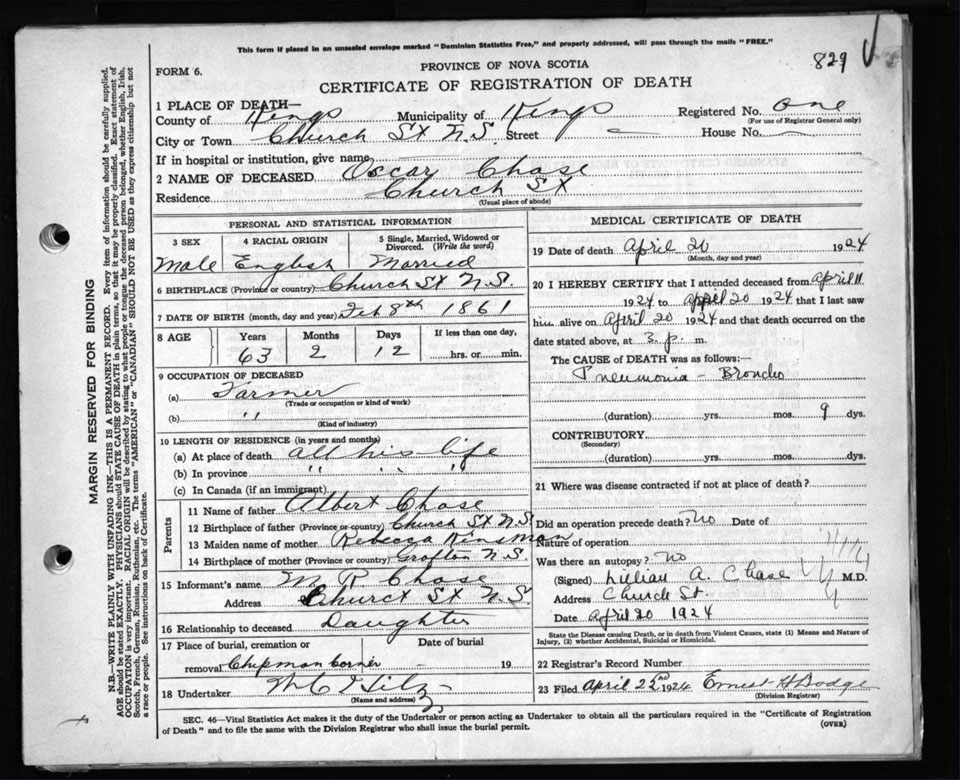 This form if placed in an unsealed envelope marked "Dominion Statistics Free," and properly addressed, will pass through the mails "FREE."
829
PROVINCE OF NOVA SCOTIA
FORM 6.
CERTIFICATE OF REGISTRATION OF DEATH
1 PLACE OF DEATH—
County of Kings Municipality of Kings Registered No. one
(For use of Registrar General only)
City or Town Church St N.S. Street — House No. —
If in hospital or institution, give name
2 NAME OF DECEASED Oscar Chase
Residence Church St
(Usual place of abode)
PERSONAL AND STATISTICAL INFORMATION
3 SEX 4 RACIAL ORIGIN 5 Single, Married, Widowed or Divorced. (Write the word)
Male English Married
6 BIRTHPLACE (Province or country) Church St N.S.
7 DATE OF BIRTH (month, day and year) Feb 8th 1861
8 AGE Years Months Days If less than one day,
63 2 12 hrs. or min.
9 OCCUPATION OF DECEASED
(a) Farmer
(Trade or occupation or kind of work)
(b) " "
(Kind of industry)
10 LENGTH OF RESIDENCE (in years and months)
(a) At place of death all his life
(b) In province " " "
(c) In Canada (if an immigrant)
Parents
11 Name of father Albert Chase
12 Birthplace of father (Province or country) Church St N.S.
13 Maiden name of mother Rebecca Kinsman
14 Birthplace of mother (Province or country) Grafton N.S.
15 Informant's name M R Chase
Address Church St N.S.
16 Relationship to deceased Daughter
17 Place of burial, cremation or removal Chipman Corner Date of burial 19
18 Undertaker
(Name and address)
MEDICAL CERTIFICATE OF DEATH
19 Date of death April 20 1924
(Month, day and year)
20 I HEREBY CERTIFY that I attended deceased from April 11
1924 to April 20 1924 that I last saw
him alive on April 20 1924 and that death occurred on the
date stated above, at 3 p. m.
The CAUSE of DEATH was as follows:—
Pneumonia - Broncho
(duration) yrs. mos. 9 dys.
CONTRIBUTORY
(Secondary)
(duration) yrs. mos. dys.
21 Where was disease contracted if not at place of death?
Did an operation precede death? No Date of
Nature of operation
Was there an autopsy? No
(Signed) Lillian A. Chase M.D.
Address Church St.
Date April 20 1924
State the Disease causing Death, or in death from Violent Causes, state (1) Means and Nature of Injury, (2) whether Accidental, Suicidal or Homicidal.
22 Registrar's Record Number
23 Filed April 22nd 1924 Ernest H Dodge
(Division Registrar)
SEC. 46—Vital Statistics Act makes it the duty of the Undertaker or person acting as Undertaker to obtain all the particulars required in the "Certificate of Registration
of Death" and to file the same with the Division Registrar who shall issue the burial permit. (OVER)
MARGIN RESERVED FOR BINDING
N.B.—WRITE PLAINLY WITH UNFADING INK—THIS IS A PERMANENT RECORD. Every item of information should be carefully supplied.
AGE should be stated EXACTLY. PHYSICIANS should STATE CAUSE OF DEATH in plain terms, so that it may be properly classified. Exact statement of
OCCUPATION is very important. RACIAL ORIGIN will be described by stating to what people or tongue the deceased person belonged, whether English, Irish,
Scotch, French, German, Russian, Ruthenian, etc. The terms "AMERICAN" or "CANADIAN" SHOULD NOT BE USED as they express citizenship but not
a race or people. See instructions on back of Certificate.